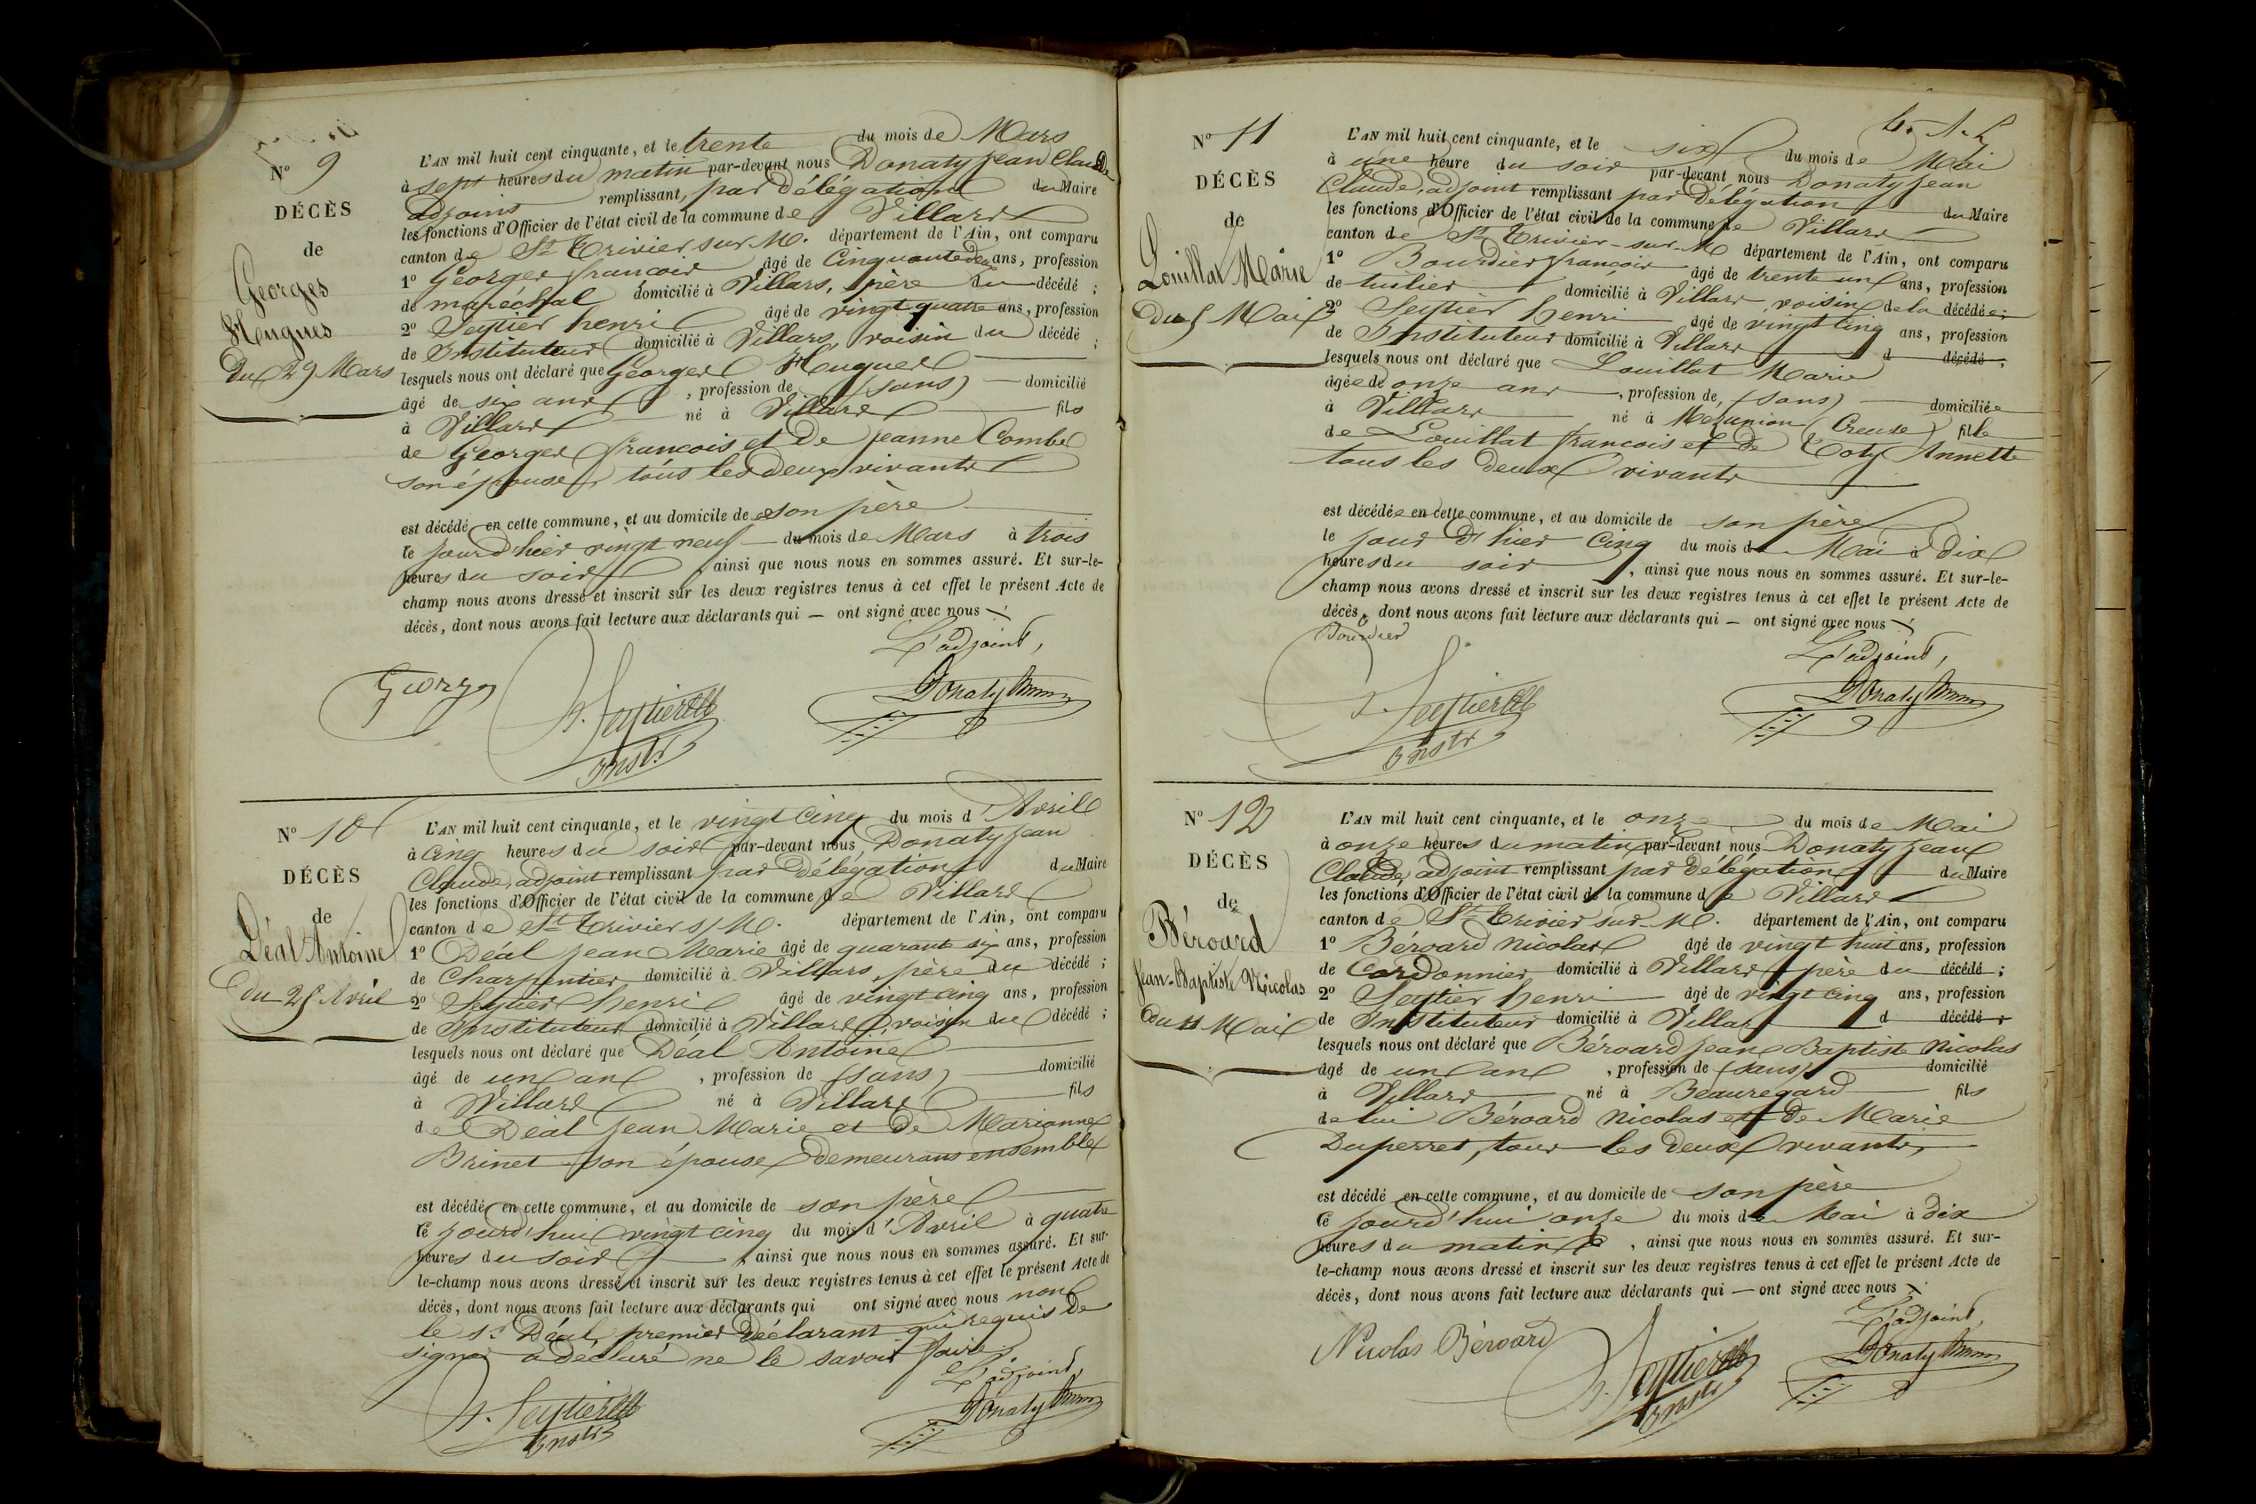 N° 9
DÉCÈS
de
Georges
Hugues
du 29 Mars
L'AN mil huit cent cinquante, et le trente du mois de Mars
à sept heures du matin par-devant nous Donaty Jean Claude
adjoint remplissant, par délégation du Maire
les fonctions d'Officier de l'état civil de la commune de Villars
canton de St Trivier sur M. département de l'Ain, ont comparu
1° Georges françois âgé de Cinquante deux ans, profession
de maréchal domicilié à Villars, père du décédé ;
2° Seytier henri âgé de vingt quatre ans, profession
de Instituteur domicilié à Villars, voisin du décédé ;
lesquels nous ont déclaré que Georges Hugues
âgé de six ans, profession de (sans) domicilié
à Villars né à Villars fils
de Georges françois et de Jeanne Combe
son épouse, tous les deux vivants
est décédé en cette commune, et au domicile de son père
le jour d'hier vingt neuf du mois de Mars à trois
heures du soir, ainsi que nous nous en sommes assuré. Et sur-le-
champ nous avons dressé et inscrit sur les deux registres tenus à cet effet le présent Acte de
décès, dont nous avons fait lecture aux déclarants qui — ont signé avec nous
L'adjoint,
Georges
h. Seytier
Instr
Donaty
N° 10
DÉCÈS
de
Déal Antoine
du 25 Avril
L'AN mil huit cent cinquante, et le vingt cinq du mois d'Avril
à Cinq heures du soir par-devant nous Donaty Jean
Claude, adjoint remplissant par délégation du Maire
les fonctions d'Officier de l'état civil de la commune de Villars
canton de St Trivier s/ M. département de l'Ain, ont comparu
1° Déal Jean Marie âgé de quarante six ans, profession
de Charpentier domicilié à Villars, père du décédé ;
2° Seytier henri âgé de vingt cinq ans, profession
de Instituteur domicilié à Villars, voisin du décédé ;
lesquels nous ont déclaré que Déal Antoine
âgé de un an, profession de (sans) domicilié
à Villars né à Villars fils
de Déal Jean Marie et de Marianne
Brinet son épouse demeurans ensemble
est décédé en cette commune, et au domicile de son père
le jourd'hui vingt cinq du mois d'Avril à quatre
heures du soir, ainsi que nous nous en sommes assuré. Et sur-
le-champ nous avons dressé et inscrit sur les deux registres tenus à cet effet le présent Acte de
décès, dont nous avons fait lecture aux déclarants qui ont signé avec nous non
le sr Déal, premier déclarant qui requis de
signer a déclaré ne le savoir faire.
L'adjoint,
h. Seytier
Instr
Donaty
N° 11
DÉCÈS
de
Louillat Marie
du 5 Mai
L'AN mil huit cent cinquante, et le six du mois de Mai
à une heure du soir par-devant nous Donaty Jean
Claude, adjoint remplissant par délégation du Maire
les fonctions d'Officier de l'état civil de la commune de Villars
canton de St Trivier-sur-M département de l'Ain, ont comparu
1° Bourdier françois âgé de trente un ans, profession
de tuilier domicilié à Villars, voisin de la décédée ;
2° Seytier henri âgé de vingt cinq ans, profession
de Instituteur domicilié à Villars d décédé ;
lesquels nous ont déclaré que Louillat Marie
âgée de onze ans, profession de, (sans) domiciliée
à Villars né à (Creuse) fille
de Louillat françois et de Coty Annette
tous les deux vivants
est décédée en cette commune, et au domicile de son père
le jour d'hier cinq du mois de Mai à dix
heures du soir, ainsi que nous nous en sommes assuré. Et sur-le-
champ nous avons dressé et inscrit sur les deux registres tenus à cet effet le présent Acte de
décès, dont nous avons fait lecture aux déclarants qui — ont signé avec nous
Bourdier
L'adjoint,
h. Seytier
Instr
Donaty
N° 12
DÉCÈS
de
Béroard
Jean-Baptiste Nicolas
du 11 Mai
L'AN mil huit cent cinquante, et le onze du mois de Mai
à onze heures du matin par-devant nous Donaty Jean
Claude, adjoint remplissant par délégation du Maire
les fonctions d'Officier de l'état civil de la commune de Villars
canton de St Trivier sur M. département de l'Ain, ont comparu
1° Béroard Nicolas âgé de vingt huit ans, profession
de Cordonnier domicilié à Villars père du décédé ;
2° Seytier henri âgé de vingt cinq ans, profession
de Instituteur domicilié à Villars d décédé ;
lesquels nous ont déclaré que Béroard Jean Baptiste Nicolas
âgé de un an, profession de (sans) domicilié
à Villars né à Beauregard fils
de lui Béroard Nicolas et de Marie
Duperret, tous les deux vivants,
est décédé en cette commune, et au domicile de son père
le jourd'hui onze du mois de Mai à dix
heures du matin, ainsi que nous nous en sommes assuré. Et sur-
le-champ nous avons dressé et inscrit sur les deux registres tenus à cet effet le présent Acte de
décès, dont nous avons fait lecture aux déclarants qui — ont signé avec nous
L'adjoint,
Nicolas Béroard
h. Seytier
Instr
Donaty